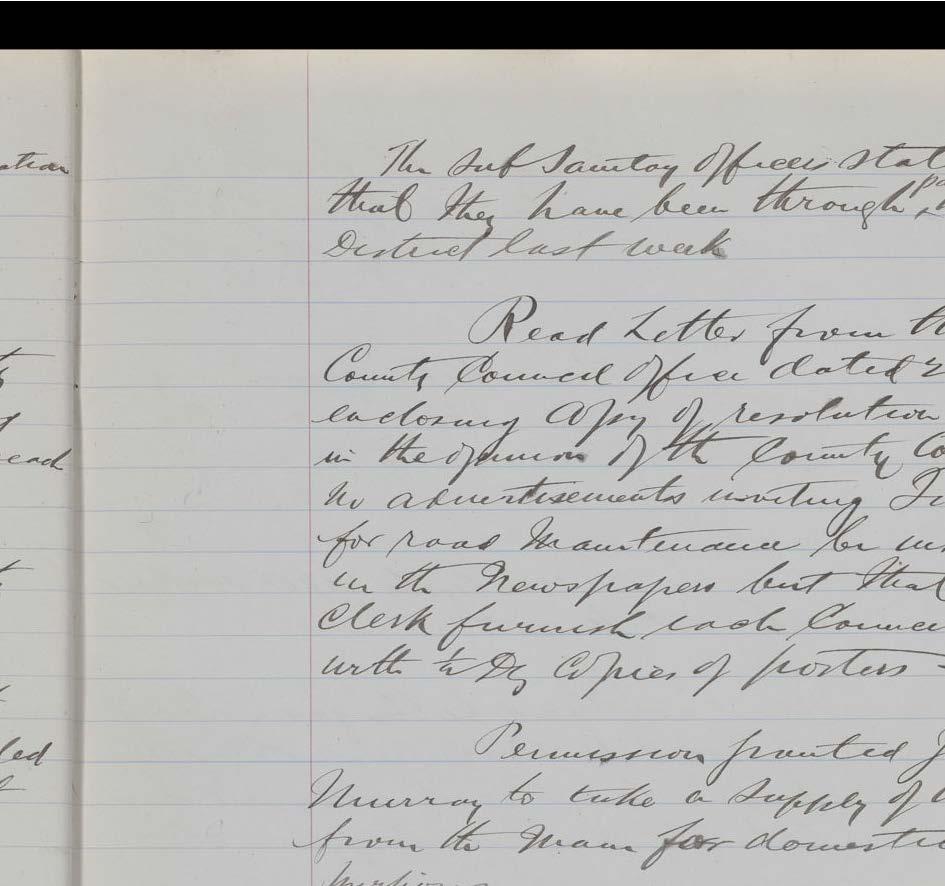 ation
each
led
The sub Sanitary Officers stat
that they have been through
District last week
Read Letter from th
County Council Office dated 2
enclosing Copy of resolution
in the opinion of the County Co
no advertisements inviting
for road Maintenance be
in the Newspapers but that
Clerk furnish each Counci
with ½ Dz Copies of posters
Permission granted J
Murray to take a supply of
from the Main for domestic